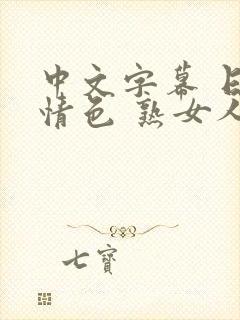 中文字幕 日
情色 熟女人
七寶